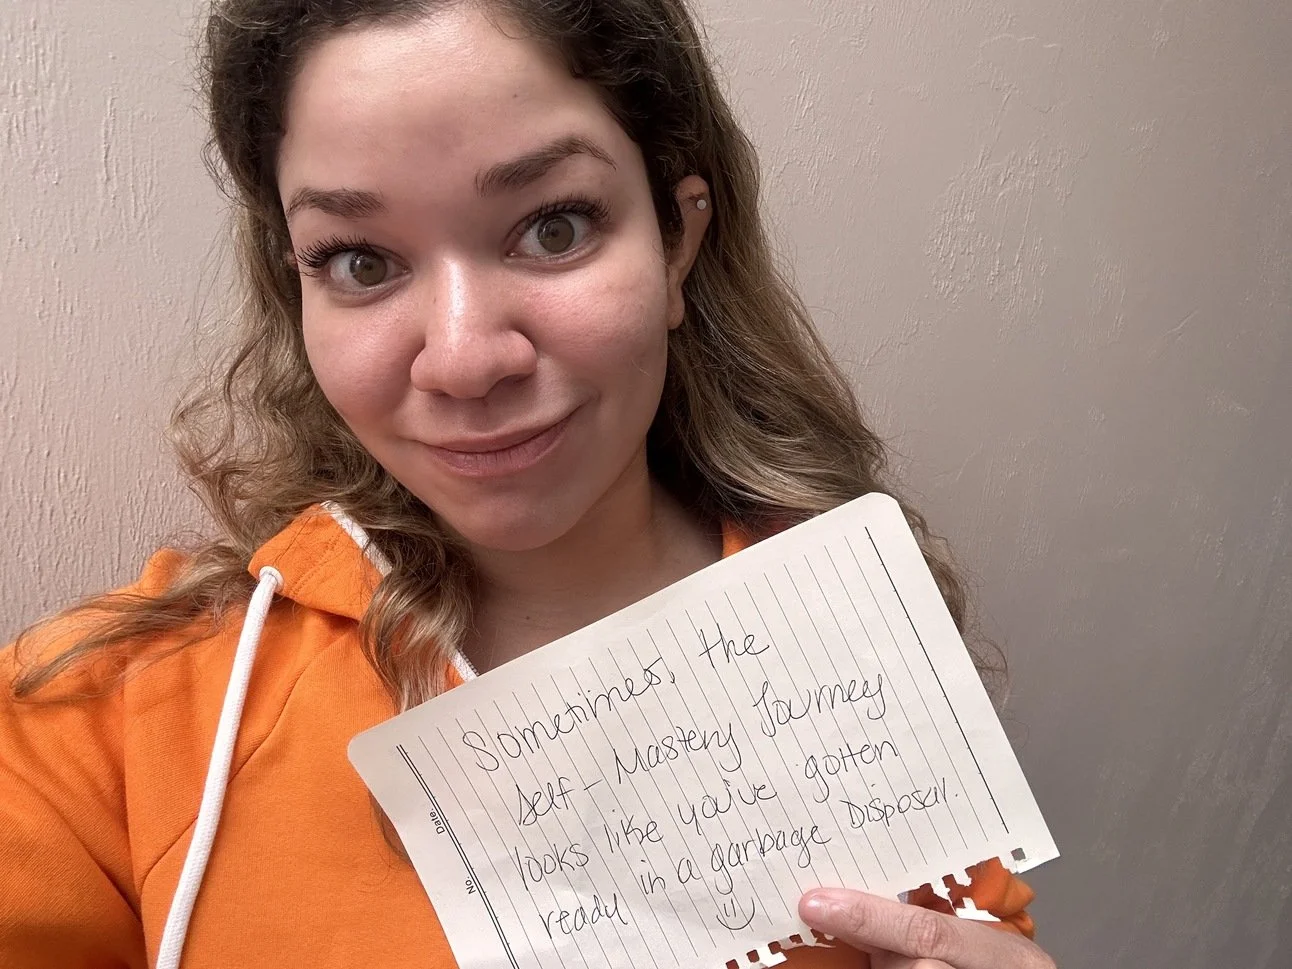 Sometimes, the
self-Mastery Journey
looks like you've gotten
ready in a garbage Disposal.
Date.
No.